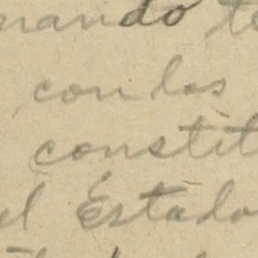 nando te
con los
constit
el Estado